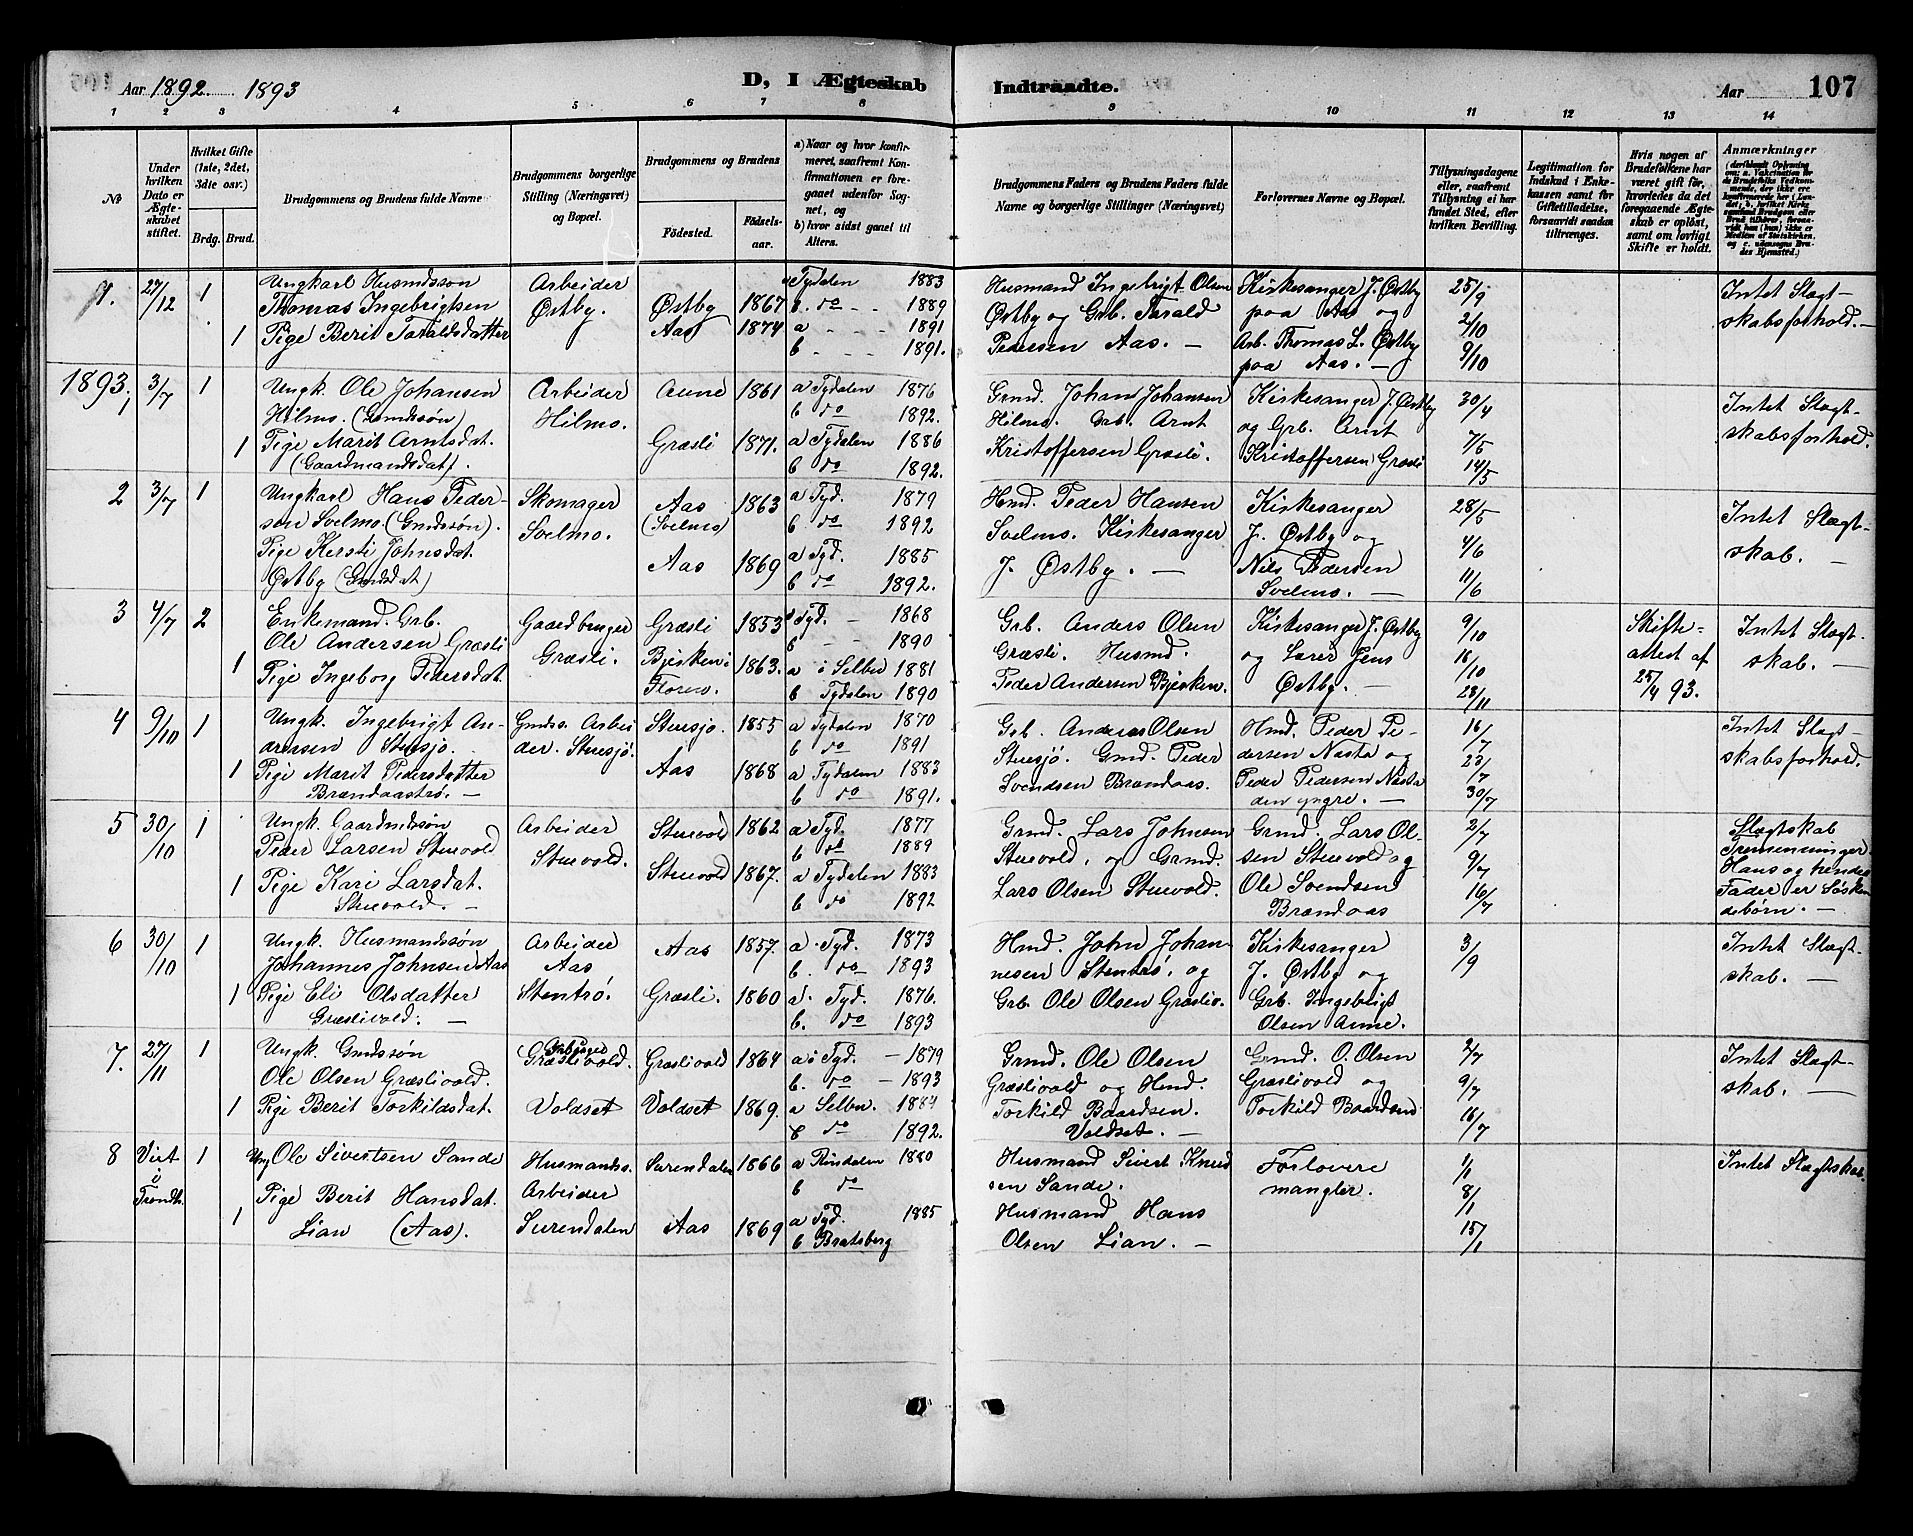 Aar 1892. 1893
D, I Ægteskab Indtraadte.
Aar 107
1 2 3 4 5 6 7 8 9 10 11 12 13 14
No
Under hvilken Dato er Ægteskabet stiftet.
Hvilket Gifte (1ste, 2det, 3die osv.)
Brdg. Brud.
Brudgommens og Brudens fulde Navne
Brudgommens borgerlige Stilling (Næringsvei) og Bopæl.
Brudgommens og Brudens
Födested.
Födselsaar.
a) Naar og hvor konfirmeret, saafremt Konfirmationen er foregaaet udenfor Sognet, og
b) hvor sidst ganet til Alters.
Brudgommens Faders og Brudens Faders fulde Navne og borgerlige Stillinger (Næringsvei)
Forlovernes Navne og Bopæl.
Tillysningsdagene eller, saafremt Tillysning ei har fundet Sted, efter hvilken Bevilling.
Legitimation for Indskud i Enkekassen samt for Giftetilladelse, forsaavidt saadan tiltrænges.
Hvis nogen af Brudefolkene har været gift før, hvorledes da det foregaaende Ægteskab er oplöst, samt om lovligt Skifte er holdt.
Anmærkninger
1. 27/12 1
Ungkarl Husmdssøn
Thomas Ingebrigtsen
1 Pige Berit Taraldsdatter
Arbeider
Østby.
Østby 1867
Aas 1874
a Tydalen 1883
b. do 1889
a 1891
b 1891.
Husmand Ingebrigt Olsen
Østby og Grb. Tarald
Pedersen Aas. —
Kirkesanger J. Østby
paa Aas og
Arb. Thomas L. Østby
paa Aas. —
25/9
2/10
9/10
Intet Slagt-
skabsforhold. —
1893.
1 3/7 1
Ungk. Ole Johansen
Hilmo. (Gmdssøn)
1 Pige Marit Arntsdat.
(Gaardmandsdat).
Arbeider
Hilmo.
Aune 1861
Græsli 1871.
a Tydalen 1876
b do 1892.
a Tydalen 1886
b do 1892.
Grmd. Johan Johansen
Hilmo. Grb. Arnt
Kristoffersen Græsli.
Kirkesanger J. Østby
og Grb. Arnt
Kristoffersen Græsli
30/4
7/5
14/5
Intet Slagt-
skabsforhold.
2 3/7 1
Ungkarl Hans Peder-
sen Svelmo. (Gmdssøn).
Pige Kersti Johnsdat.
Østby (Gmdsdat)
Skomager
Svelmo.
Aas 1863
(Svelmo)
Aas 1869
a Tyd. 1879
b do 1892
a Tyd. 1885
b do 1892.
Hmd. Peder Hansen
Svelmo. Kirkesanger
J. Østby. —
Kirkesanger
J. Østby og
Nils Pedersen
Svelmo. —
28/5
4/6
11/6
Intet Slagt-
skab. —
3 4/7 2
Enkemand. Grb.
Ole Andersen Græsli
1 Pige Ingeborg Pedersdat.
Gaardbruger
Græsli.
Græsli 1853
Bjerken i 1863.
Floren.
a Tyd. — 1868
b — 1890
a i Selbu 1881
b Tydalen 1890
Grb. Anders Olsen
Græsli. Husmd.
Peder Andersen Bjerken.
Kirkesanger J. Østby
og Lærer Jens
Østby. —
9/10
16/10
23/11
Skifte-
attest af
25/4 93.
Intet Slagt-
skab. —
4 9/10 1
Ungk. Ingebrigt An-
dersen Stuesjø.
1 Pige Marit Pedersdatter
Brændaastrø. —
Gmdss. Arbei
der. Stuesjø.
Stuesjø. 1855
Aas 1868
a Tydalen 1870
b do 1891
a Tydalen 1883
b do 1891.
Grb. Anders Olsen
Stuesjø. Gmd. Peder
Svendsen Brændaas.
Hmd. Peder Pe-
dersen Nasta og
Peder Pedersen Nasta
den yngre. —
16/7
23/7
30/7
Intet Slagt-
skabsforhold.
5 30/10 1
Ungk. Gaardmdssøn
Peder Larsen Stuevold
1 Pige Kari Larsdat.
Stuevold. —
Arbeider
Stuevold.
Stuevold 1862
Stuevold 1867.
a Tyd. 1877
b do 1889
a Tydalen 1883
b do 1892
Grmd. Lars Johnsen
Stuevold. og Grmd.
Lars Olsen Stuevold.
Grmd. Lars Ol-
sen Stuevold og
Ole Svendsen
Brændaas
2/7
9/7
16/7
Slagtskab
Tremenninger
Hans og hendes
Fader er Søsken
debørn. —
6 30/10 1
Ungk. Husmandssøn
Johannes Johnsen Aas
1 Pige Eli Olsdatter
Græslivold. —
Arbeider
Aas
Stentrø.
Aas 1857.
Græsli. 1860
a. Tyd. 1873
b. do 1893
a. Tyd. 1876.
b. do 1893
Hmd. John Johan-
nesen Stentrø. og
Grb. Ole Olsen Græsliv.
Kirkesanger
J. Østby og
Grb. Ingebrigt
Olsen Aune.
3/9
Intet Slagt-
skab. —
7. 27/11 1
Ungk. Gmdssøn
Ole Olsen Græslivold.
1 Pige Berit Torkildsdat.
Græslivold.
Voldset
Græslivold 1864
Voldset 1869.
a i Tyd. — 1879
b. do — 1893
a Selbu. 1884
b do 1892.
Grmd. Ole Olsen
Græslivold og Hmd.
Torkild Baardsen.
Voldset. —
Grmd. O. Olsen
Græslivold og
Torkild Baardsen
2/7
9/7
16/7
Intet Slagt-
skab. —
8 Viet i Trondh. 1
Ung Ole Sivertsen Sande
Pige Berit Hansdat.
1 Lian (Aas).
Husmandss.
Arbeider
Surendalen
Surendalen 1866
Aas 1869
a Rindalen 1880
b do
a Tyd. 1885
b Bratsberg
Husmand Sivert Knud
sen Sande.
Husmand Hans
Olsen Lian. —
Forlovere
mangler.
1/1
8/1
15/1
Intet Slagtskab.